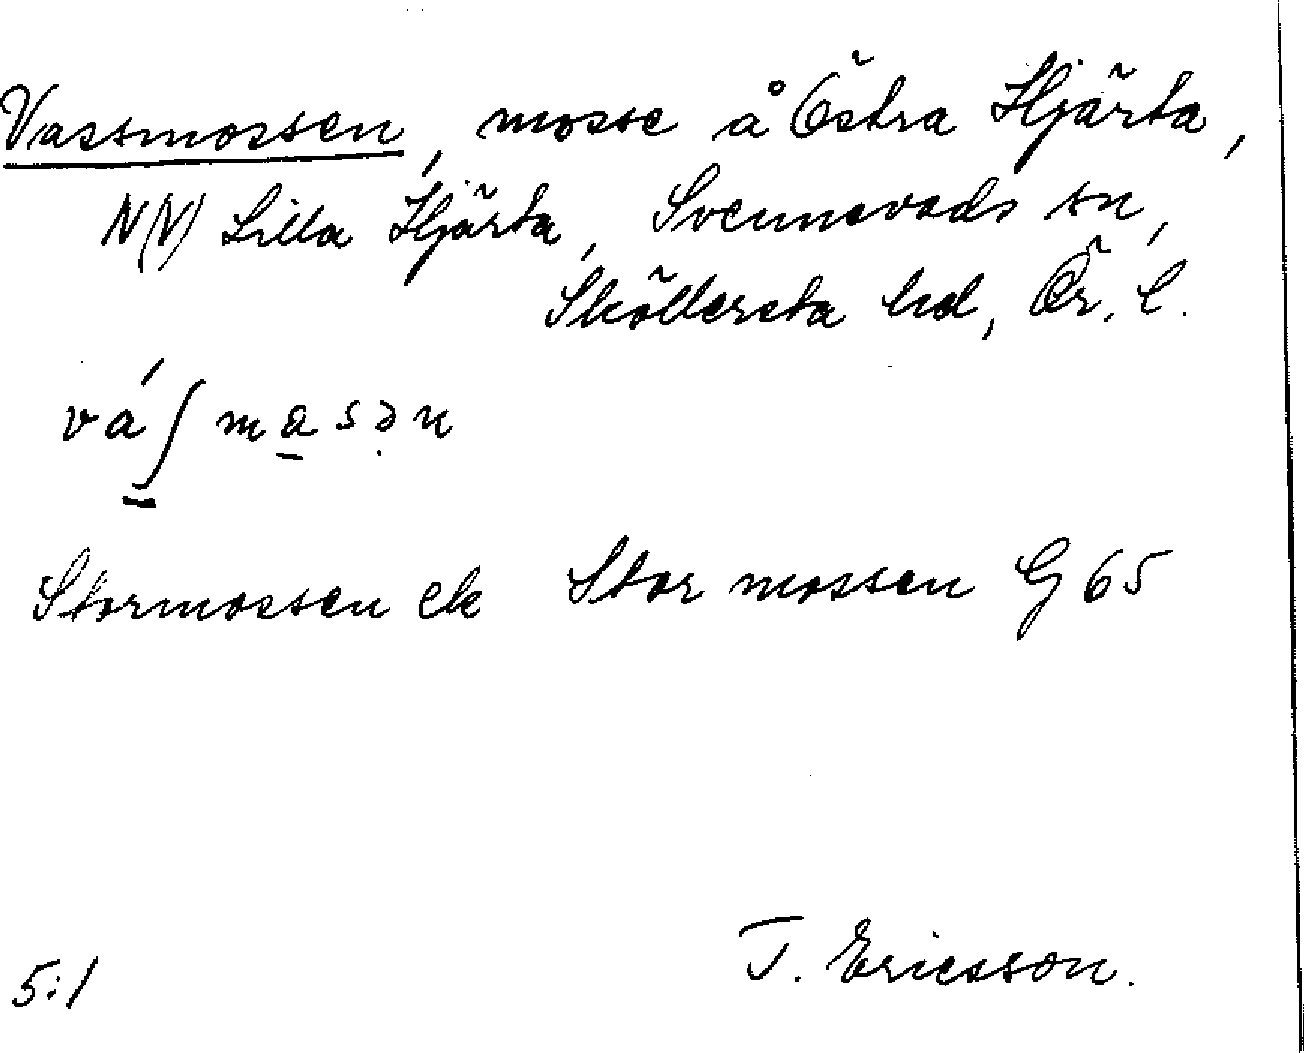 Vassmossen, mosse å Östra Hjärta,
NV Lilla Hjärta, Svennevads sn,
Sköllersta hd, Ör. l.
váʃmasən
Stormossen ek Stormossen G 65
T. Ericsson.
5:1